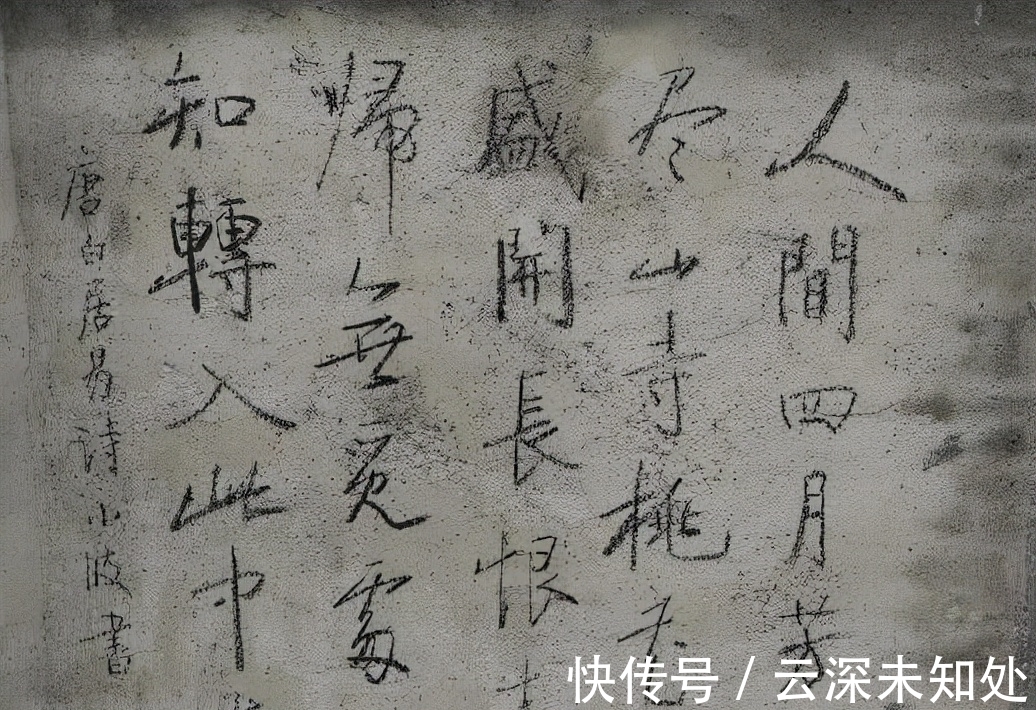 人間四月芳
尽山寺桃花
盛開長恨
歸無覓處
知轉入此中
唐白居易詩小波書
快传号 / 云深未知处